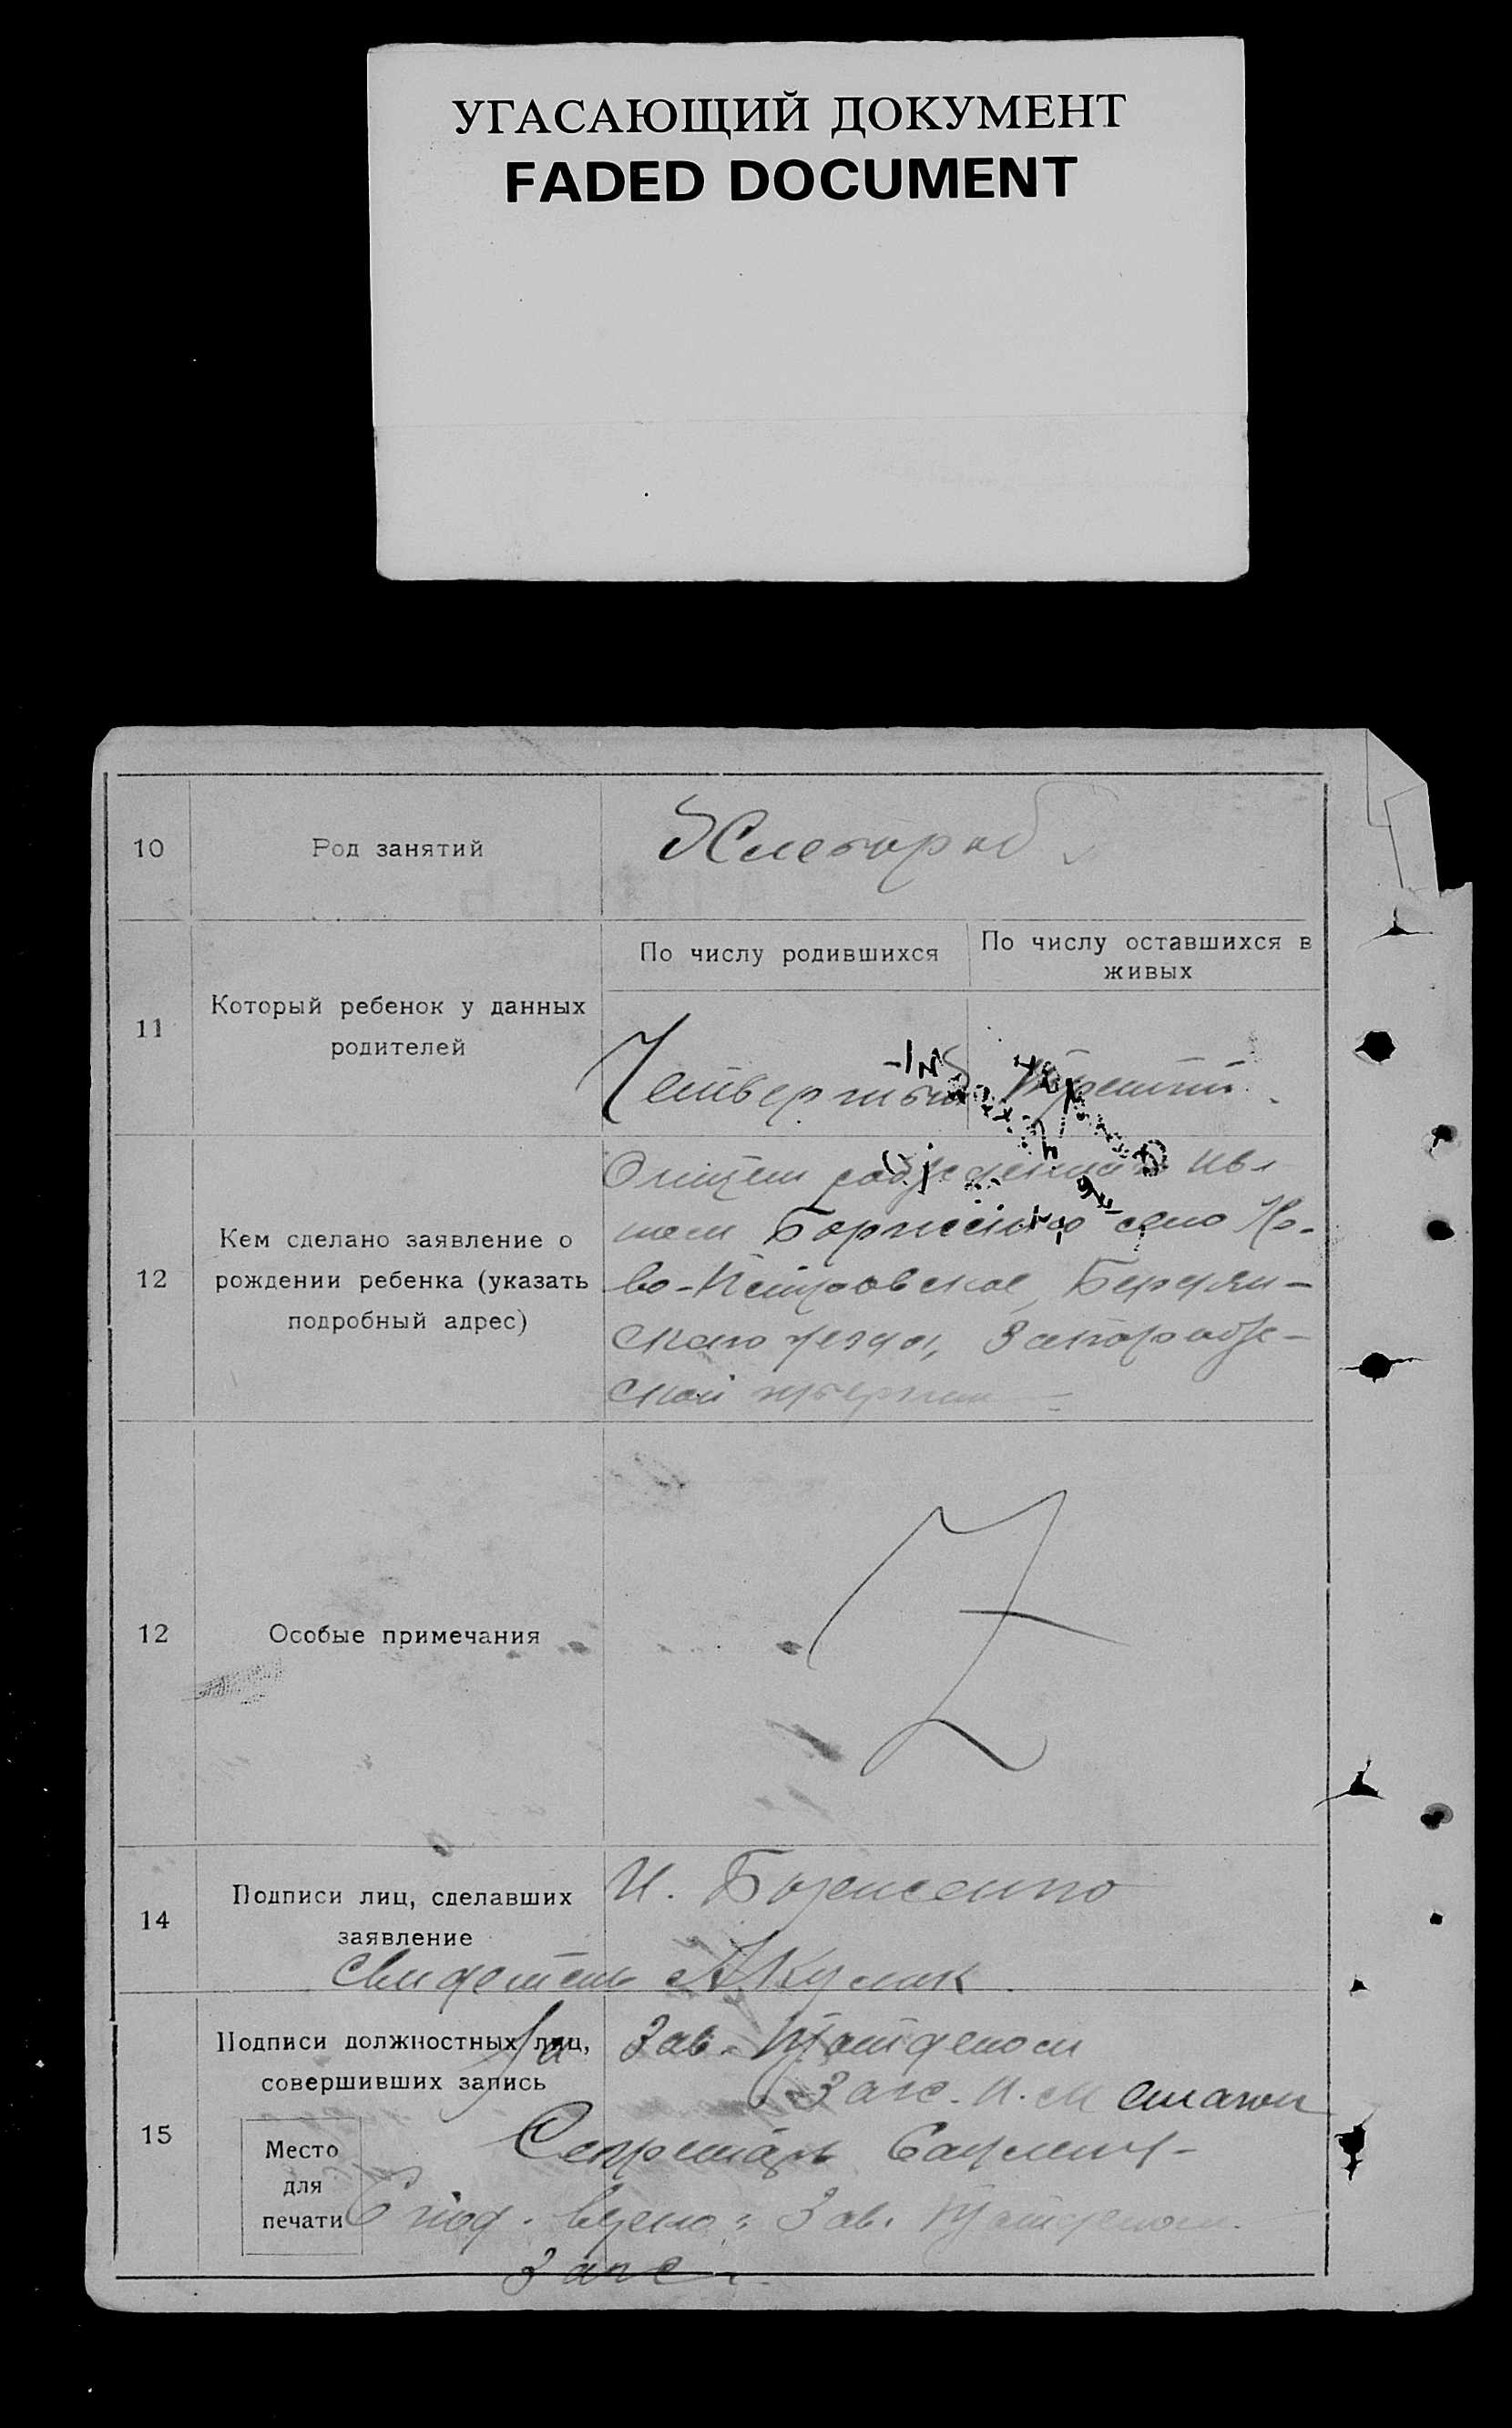 УГАСАЮЩИЙ ДОКУМЕНТ
FADED DOCUMENT
10
Род занятий
Хлебороб
11
Который ребенок у данных
родителей
По числу родившихся
По числу оставшихся в
живых
Четвертый
Третий
12
Кем сделано заявление о
рождении ребенка (указать
подробный адрес)
Отцем
село Но-
во-Петровское, Бердян-
ского уезда, Запорож-
ской губернии
12
Особые примечания
14
Подписи лиц, сделавших
заявление
И. Боженко
Свидетель А. Кулик
15
Подписи должностных лиц,
совершивших запись
За Зав.
Загс. И.
Секретарь
Место
для
печати
С под. верно: Зав.
Загс